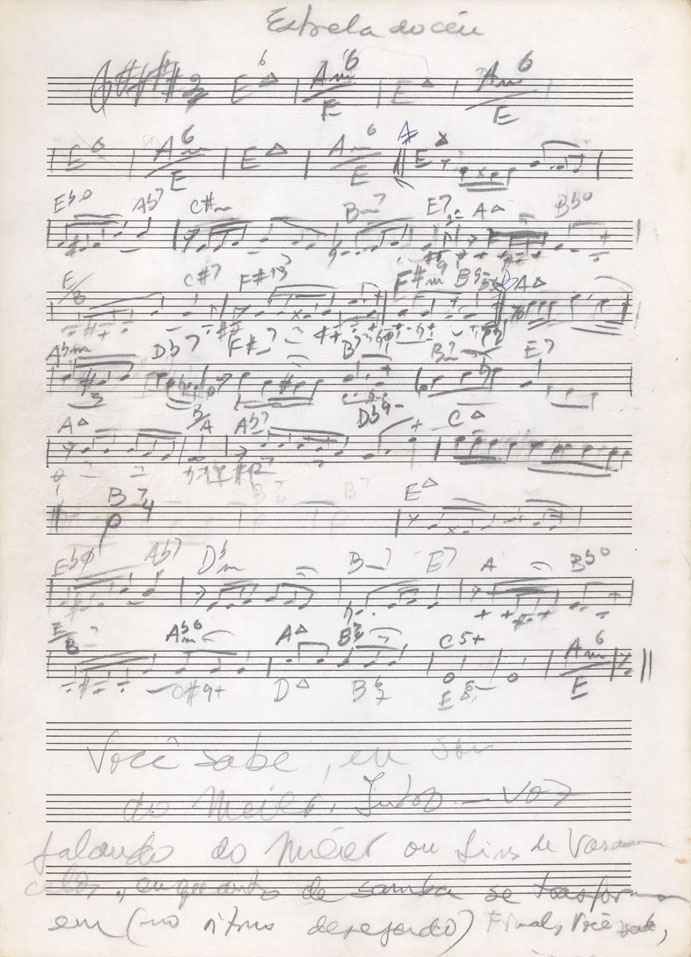 Estrela do céu
E6 Am6/E E△ Am6/E
E6 Am6/E E△ Am6/E A E△
Ebø Ab7 C#m Bm7 E7 A△ Bb°
E/B C#7 F#13 F#m A△
Abm Db7 F#m7 B7 Bm7 E7
A△ B/A Ab7 Db9- C△
B7/4 B7 E△
Ebø Ab7 Dbm Bm7 E7 A Bb°
E/B Abm6 A△ C5+ Am6/E
C#9+ D△
Você sabe, eu sou
do Méier. Introd — voz
falando do Méier ou Lins de Vascon
celos, enquanto o samba se transforma
em (no ritmo desejado) Final, Você sabe,